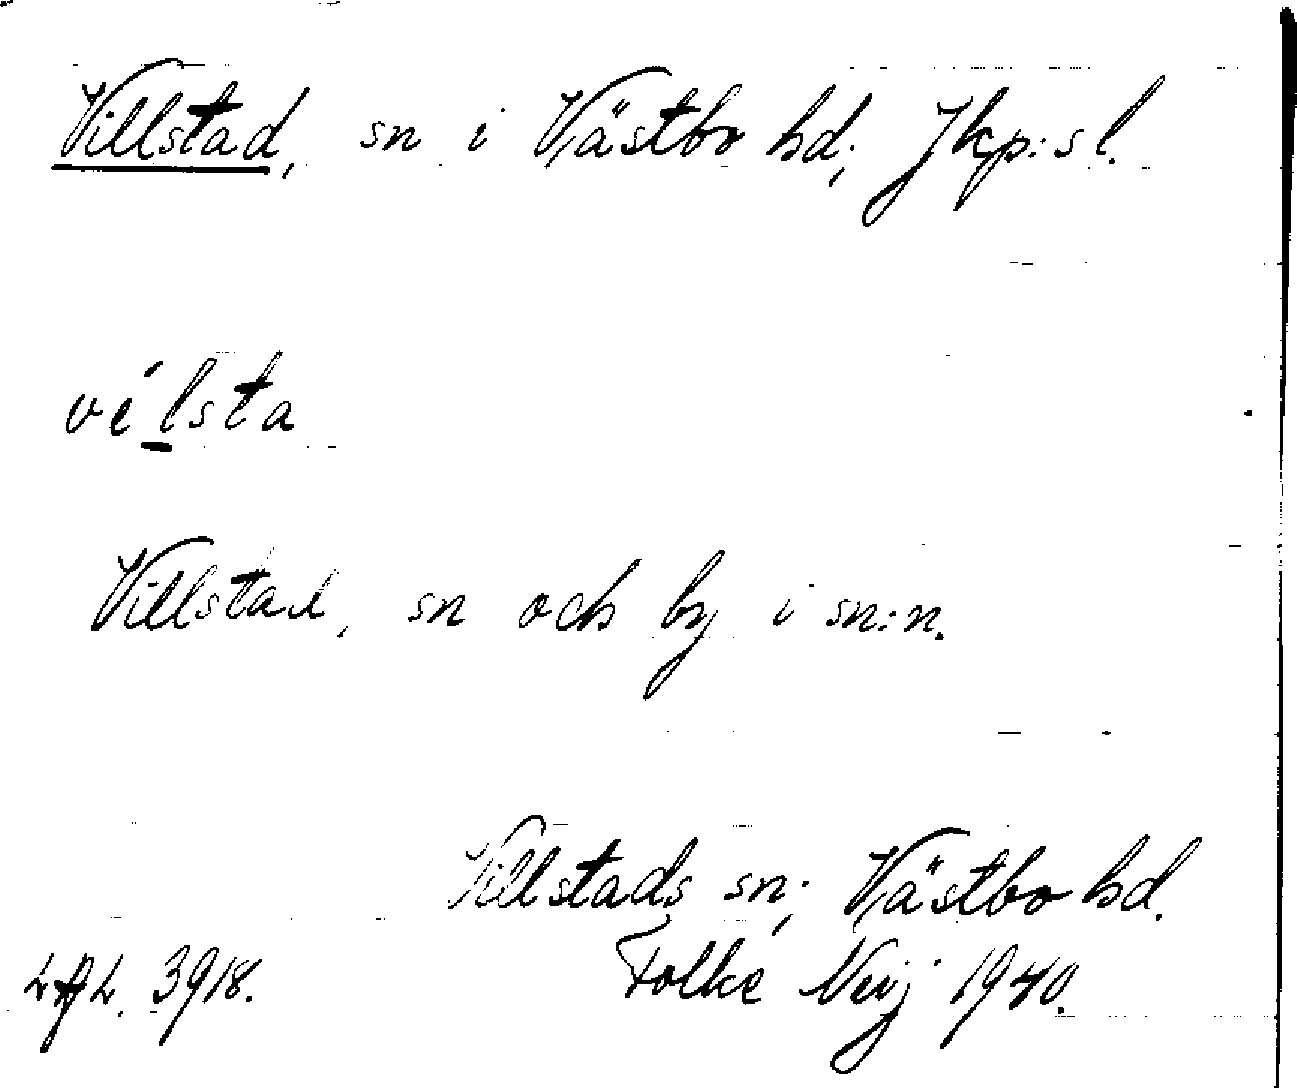 Villstad, sn i Västbo hd; Jkp:s l.
vélsta
Villstad, sn och by i sn:n.
Villstads sn; Västbo hd.
3918. Folke Neij 1940.